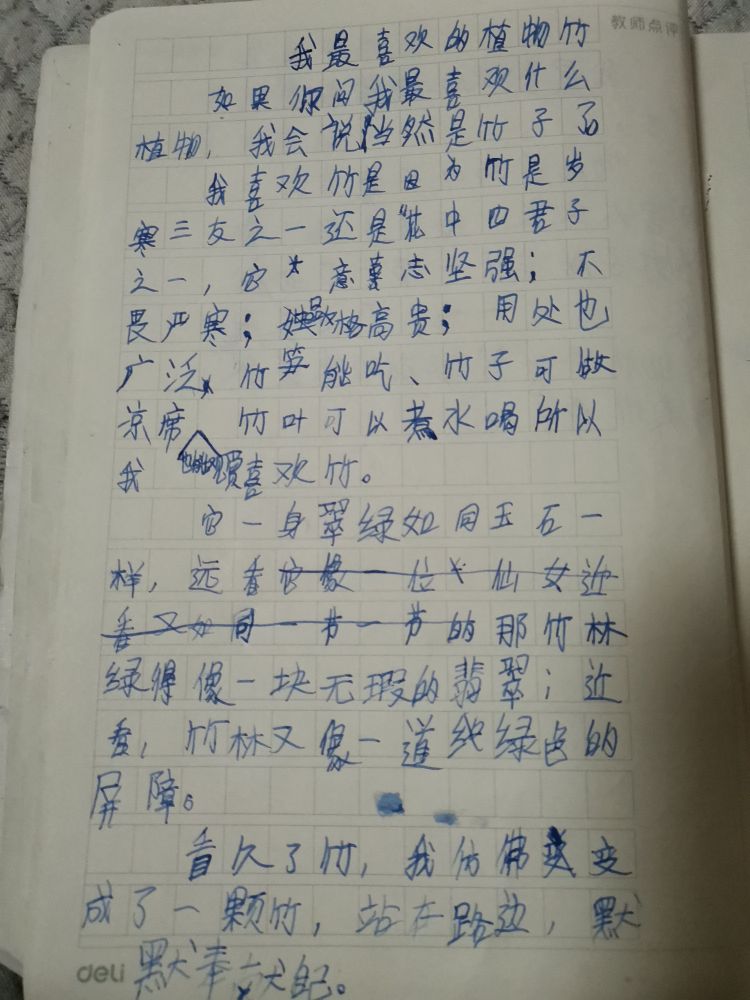 教师点评
我最喜欢的植物竹
如果你问我最喜欢什么
植物，我会说当然是竹子了
我喜欢竹是因为竹是岁
寒三友之一还是“花中四君子
之一，它意志坚强；不
畏严寒；品格高贵；用处也
广泛，竹笋能吃、竹子可做
凉席 竹叶可以煮水喝所以
我喜欢竹。
它一身翠绿如同玉石一
样，远看它像一位仙女近
看又如同一节一节的那竹林
绿得像一块无瑕的翡翠；近
看，竹林又像一道纯绿色的
屏障。
看久了竹，我仿佛变
成了一颗竹，站在路边，默
默奉献自己。
deli